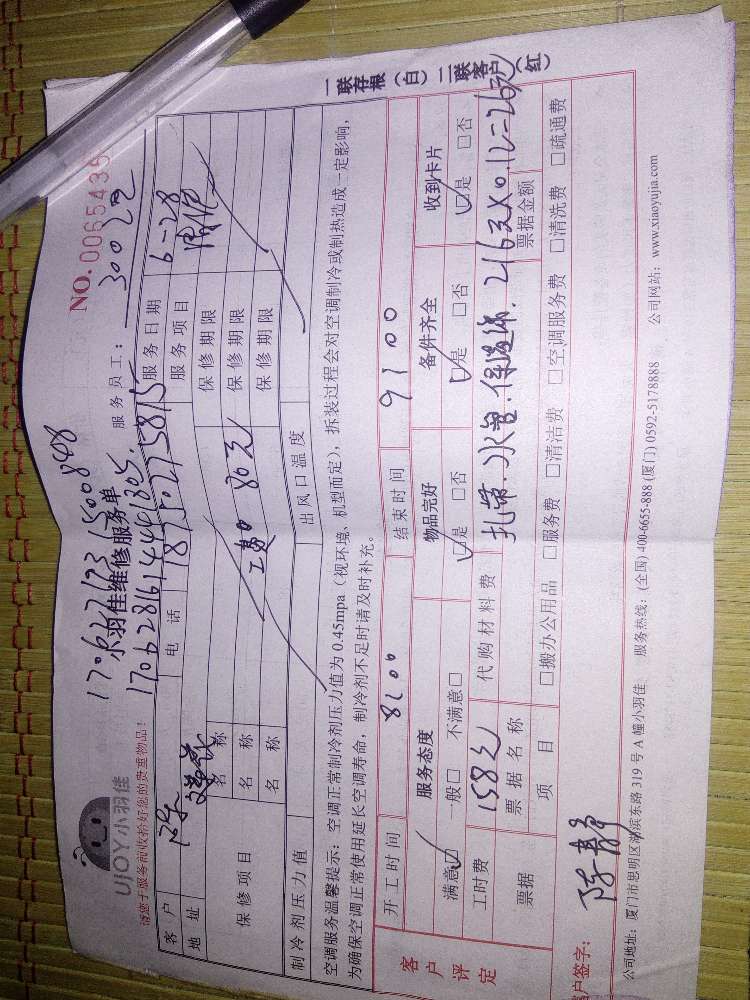 UJOY小羽佳
170627123 1500848
小羽佳维修服务单
NO. 0065435
17062816144401305.
服务员工：30022
请您于服务前收拾好您的贵重物品！
客户 陈 电话 18750275815 服务日期 6-28
地址 服务项目
保修项目 名称 保修期限
名称 工费 80元 保修期限
名称 保修期限
制冷剂压力值 出风口温度
空调服务温馨提示：空调正常制冷剂压力值为0.45mpa（视环境、机型而定），拆装过程会对空调制冷或制热造成一定影响，
为确保空调正常使用延长空调寿命，制冷剂不足时请及时补充。
客户评定
开工时间 8:00 结束时间 9:00
服务态度 物品完好 备件齐全 收到卡片
满意☑ 一般□ 不满意□ ☑是 □否 ☑是 □否 ☑是 □否
工时费 158元 代购材料费 扎带.水管.保温绵. 216元×0.12=26元
票据 票据名称 票据金额
项目 □搬办公用品 □服务费 □清洁费 □空调服务费 □清洗费 □疏通费
客户签字： 陈静
公司地址：厦门市思明区湖滨东路319号A幢小羽佳 服务热线：(全国) 400-6655-888 (厦门) 0592-5178888 公司网站：www.xiaoyujia.com
一联存根（白） 二联客户（红）